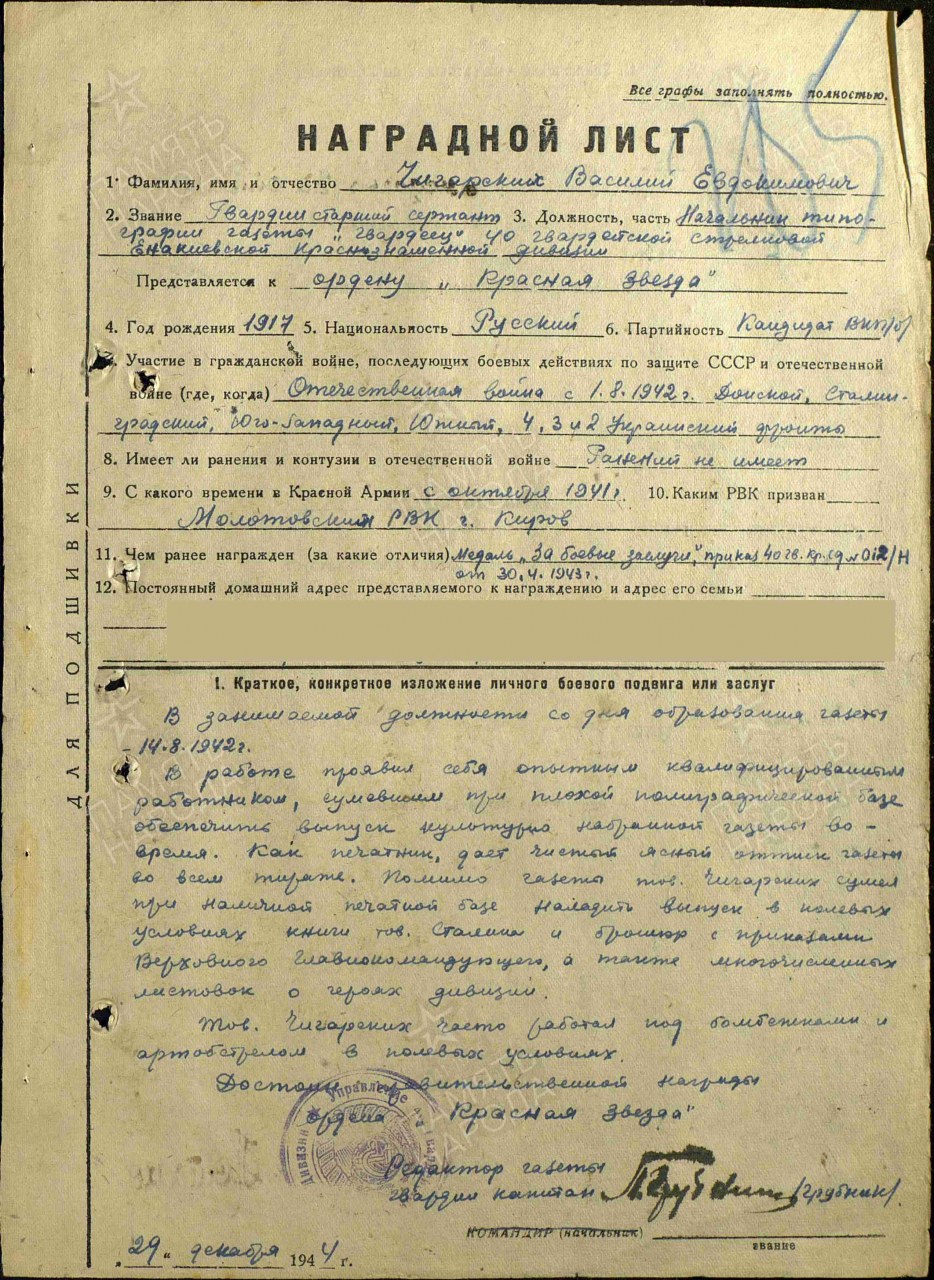 Все графы заполнять полностью.
НАГРАДНОЙ ЛИСТ
1. Фамилия, имя и отчество Чигарских Василий Евдокимович
2. Звание Гвардии старший сержант 3. Должность, часть Начальник типо-
графии газеты „Гвардеец" 40 гвардейской стрелковой
Енакиевской Краснознаменной дивизии
Представляется к ордену „Красная Звезда"
4. Год рождения 1917 5. Национальность Русский 6. Партийность Кандидат ВКП/б/
Участие в гражданской войне, последующих боевых действиях по защите СССР и отечественной
войне (где, когда) Отечественная война с 1.8.1942г. Донской, Сталин-
градский, Юго-Западный, Южный, 4, 3 и 2 Украинский фронты
8. Имеет ли ранения и контузии в отечественной войне Ранений не имеет
9. С какого времени в Красной Армии с октября 1941г. 10. Каким РВК призван
Молотовским РВК г. Киров
11. Чем ранее награжден (за какие отличия) Медаль „За боевые заслуги", приказ 40 гв. Кр. сд № 012/Н
от 30.4.1943г.
12. Постоянный домашний адрес представляемого к награждению и адрес его семьи
ДЛЯ ПОДШИВКИ
1. Краткое, конкретное изложение личного боевого подвига или заслуг
В занимаемой должности со дня образования газеты
- 14.8.1942г.
В работе проявил себя опытным квалифицированным
работником, сумевшим при плохой полиграфической базе
обеспечить выпуск культурно набранной газеты во-
время. Как печатник, дает чистый ясный оттиск газеты
во всем тираже. Помимо газеты тов. Чигарских сумел
при наличной печатной базе наладить выпуск в полевых
условиях книги тов. Сталина и брошюр с приказами
Верховного Главнокомандующего, а также многочисленных
листовок о героях дивизии.
Тов. Чигарских часто работал под бомбежками и
артобстрелом в полевых условиях.
Достоин правительственной награды
ордена „Красная Звезда"
Управление
дивизии
Редактор газеты
гвардии капитан /Грубник/
КОМАНДИР (начальник)
звание
„29" декабря 1944 г.
ПАМЯТЬ НАРОДА